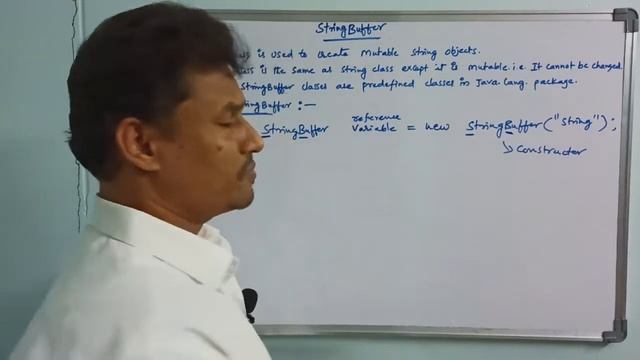 StringBuffer
is used to create mutable string objects.
is the same as string class except it is mutable i.e. It cannot be changed.
StringBuffer classes are predefined classes in Java.lang. package.
StringBuffer :-
reference
StringBuffer variable = new StringBuffer("string");
Constructor